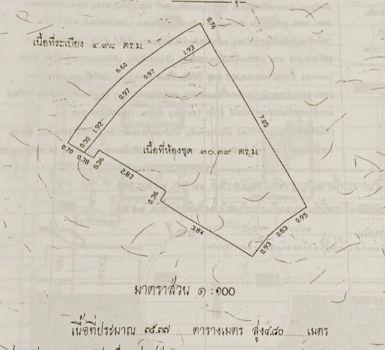 0.76
เนื้อที่ระเบียง ๔.๙๘ ตร.ม.
6.60
1.93
0.97
0.97
7.05
1.92
0.30
0.70
0.38
0.36
เนื้อที่ห้องชุด ๓๐.๓๙ ตร.ม.
2.83
0.36
0.95
3.84
0.83
0.93
มาตราส่วน ๑:๑๐๐
เนื้อที่ประมาณ ๓๕.๓๗ ตารางเมตร สูง ๔.๘๐ เมตร